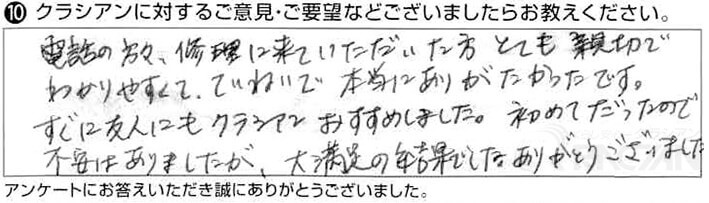 ⑩ クラシアンに対するご意見・ご要望などございましたらお教えください。
電話の方々、修理に来ていただいた方 とても 親切で
わかりやすくて、ていねいで 本当にありがたかったです。
すぐに友人にも クラシアン おすすめしました。初めてだったので
不安はありましたが、大満足の結果でした。ありがとうございました
アンケートにお答えいただき誠にありがとうございました。